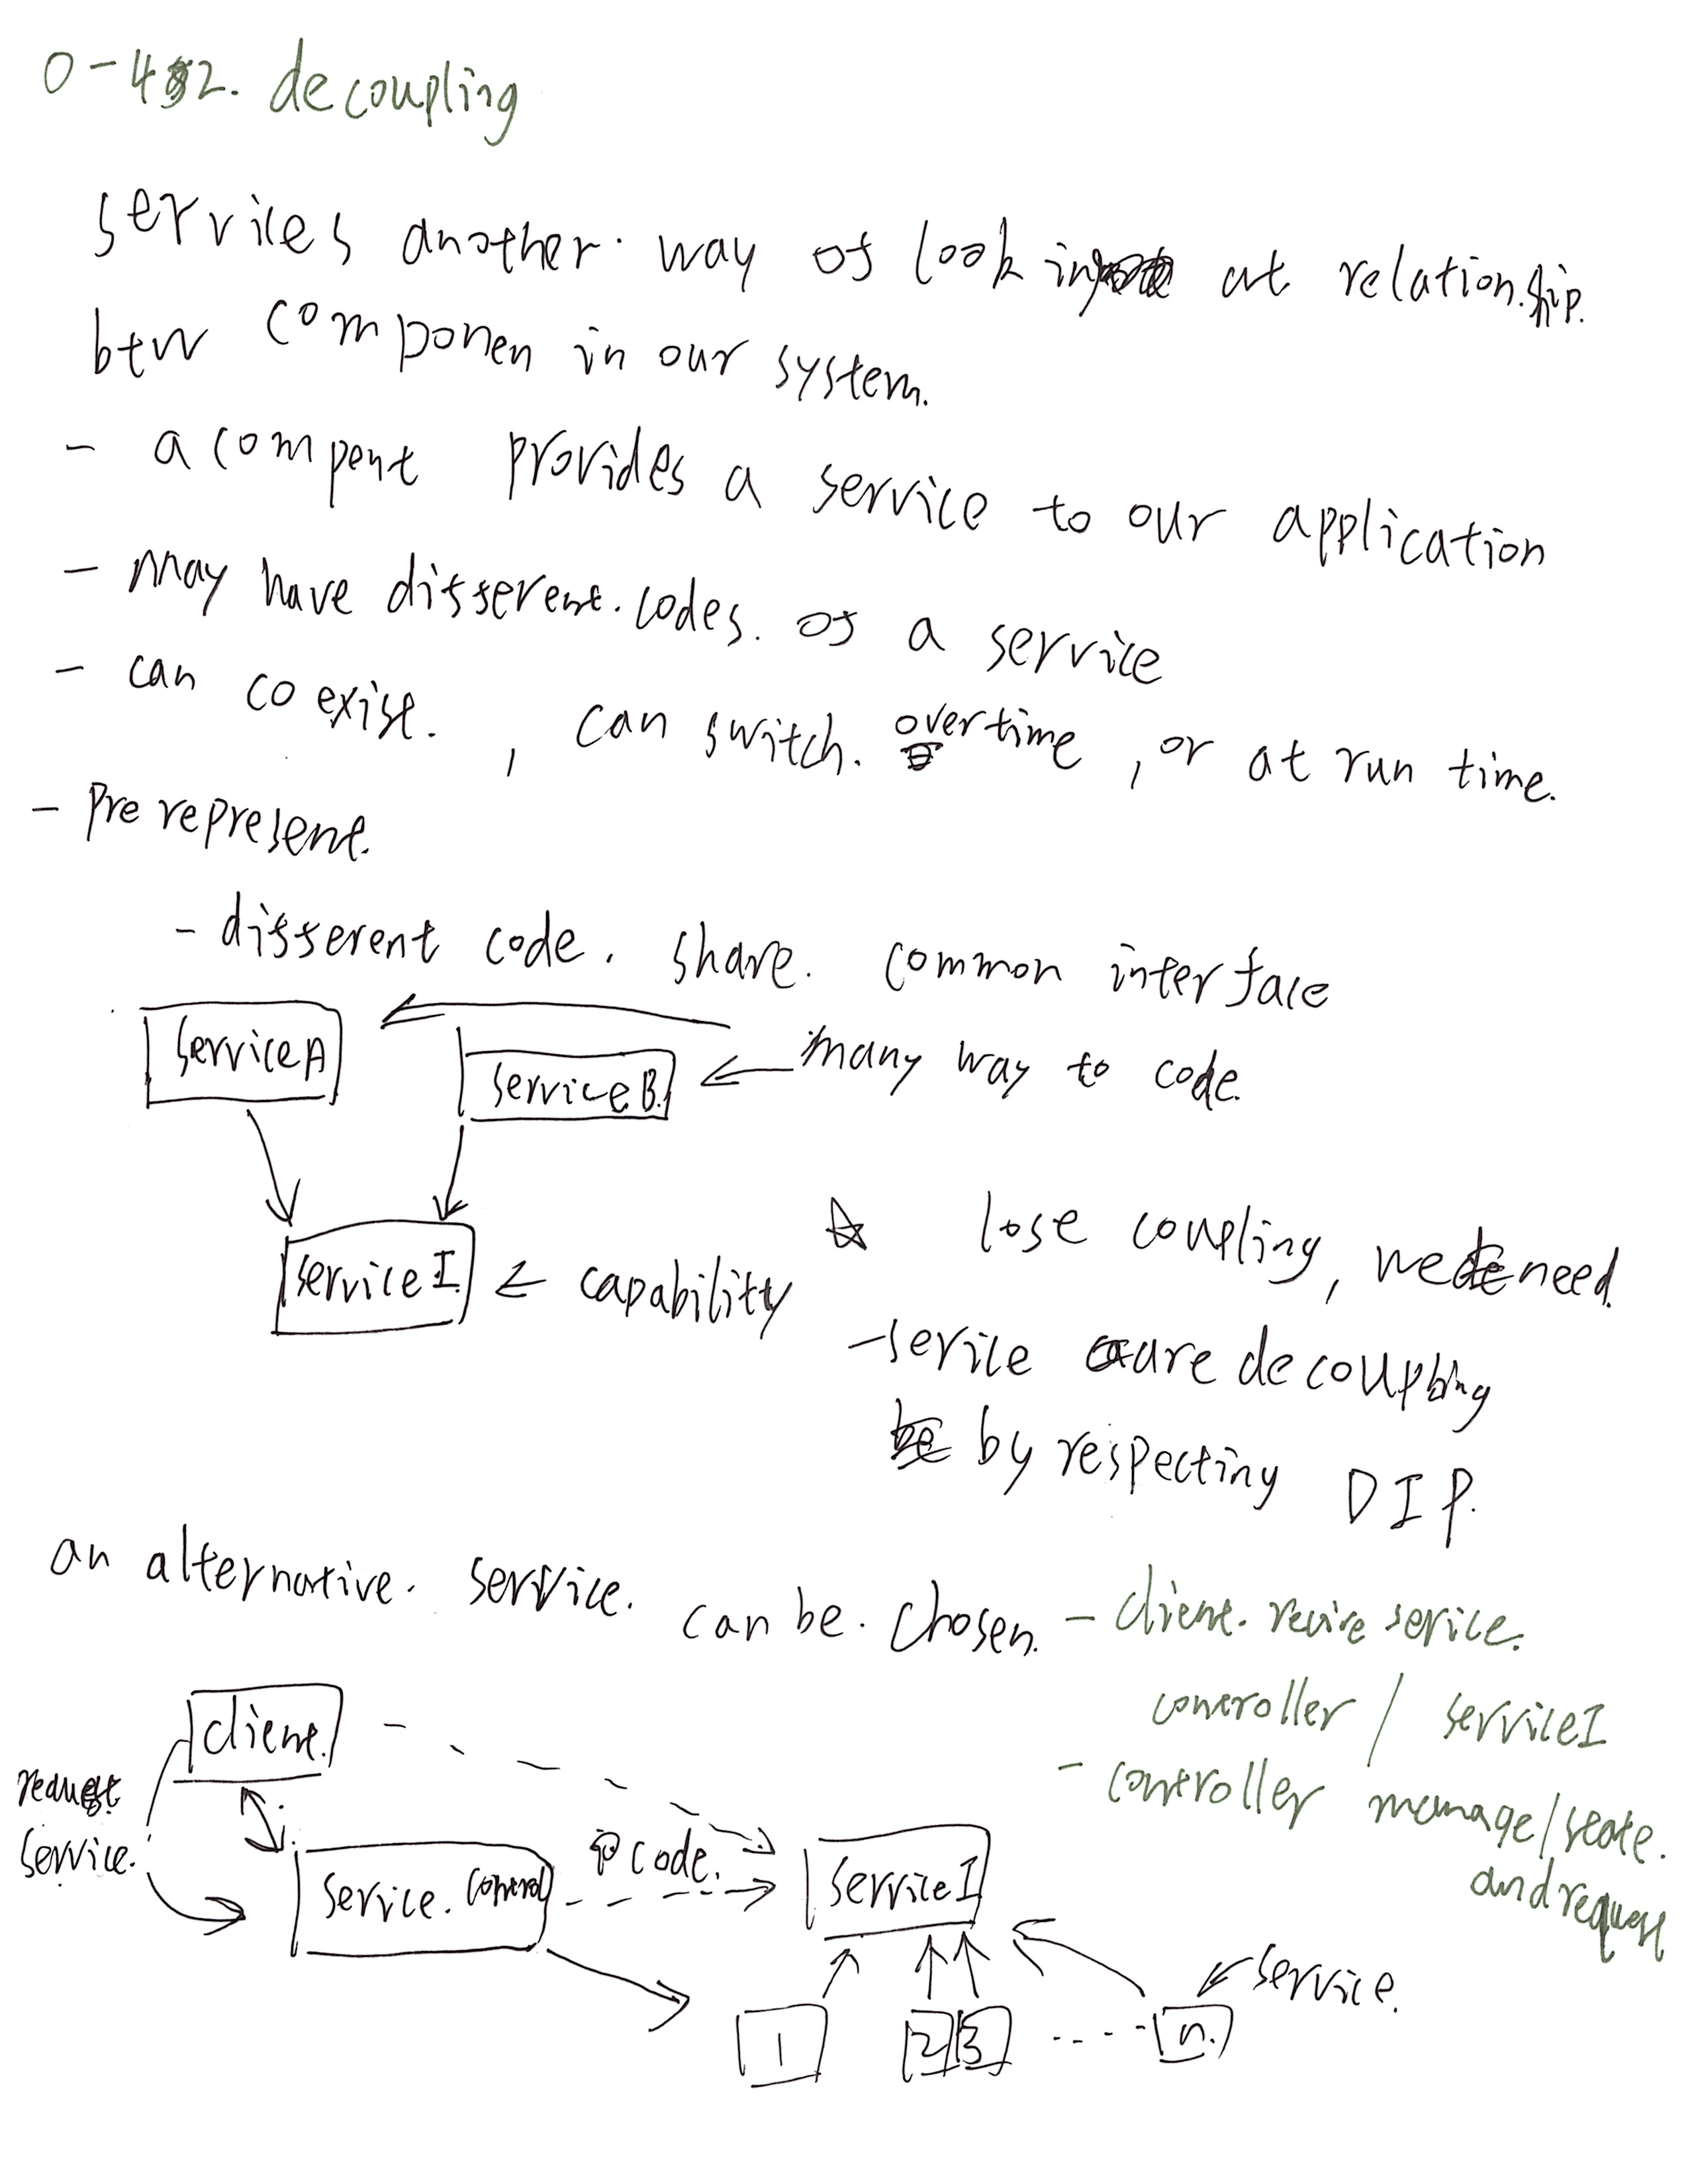 0-42. decoupling
services another way of looking at relationship.
btw componen in our system.
- a compent provides a service to our application
- may have different codes. of a service
- can coexist. , can switch. overtime , or at run time.
- Pre represent.
- different code. share. common interface
serviceA
serviceB. <- many way to code.
serviceI <- capability
☆ lose coupling, we need
- service are decoupling
by respecting DIP.
an alternative. service. can be. chosen. - client. recive serice.
controller / serviceI
- controller manage/state.
and request
client.
request
service.
service. control
code.
serviceI
service.
1
2
3
....
n.